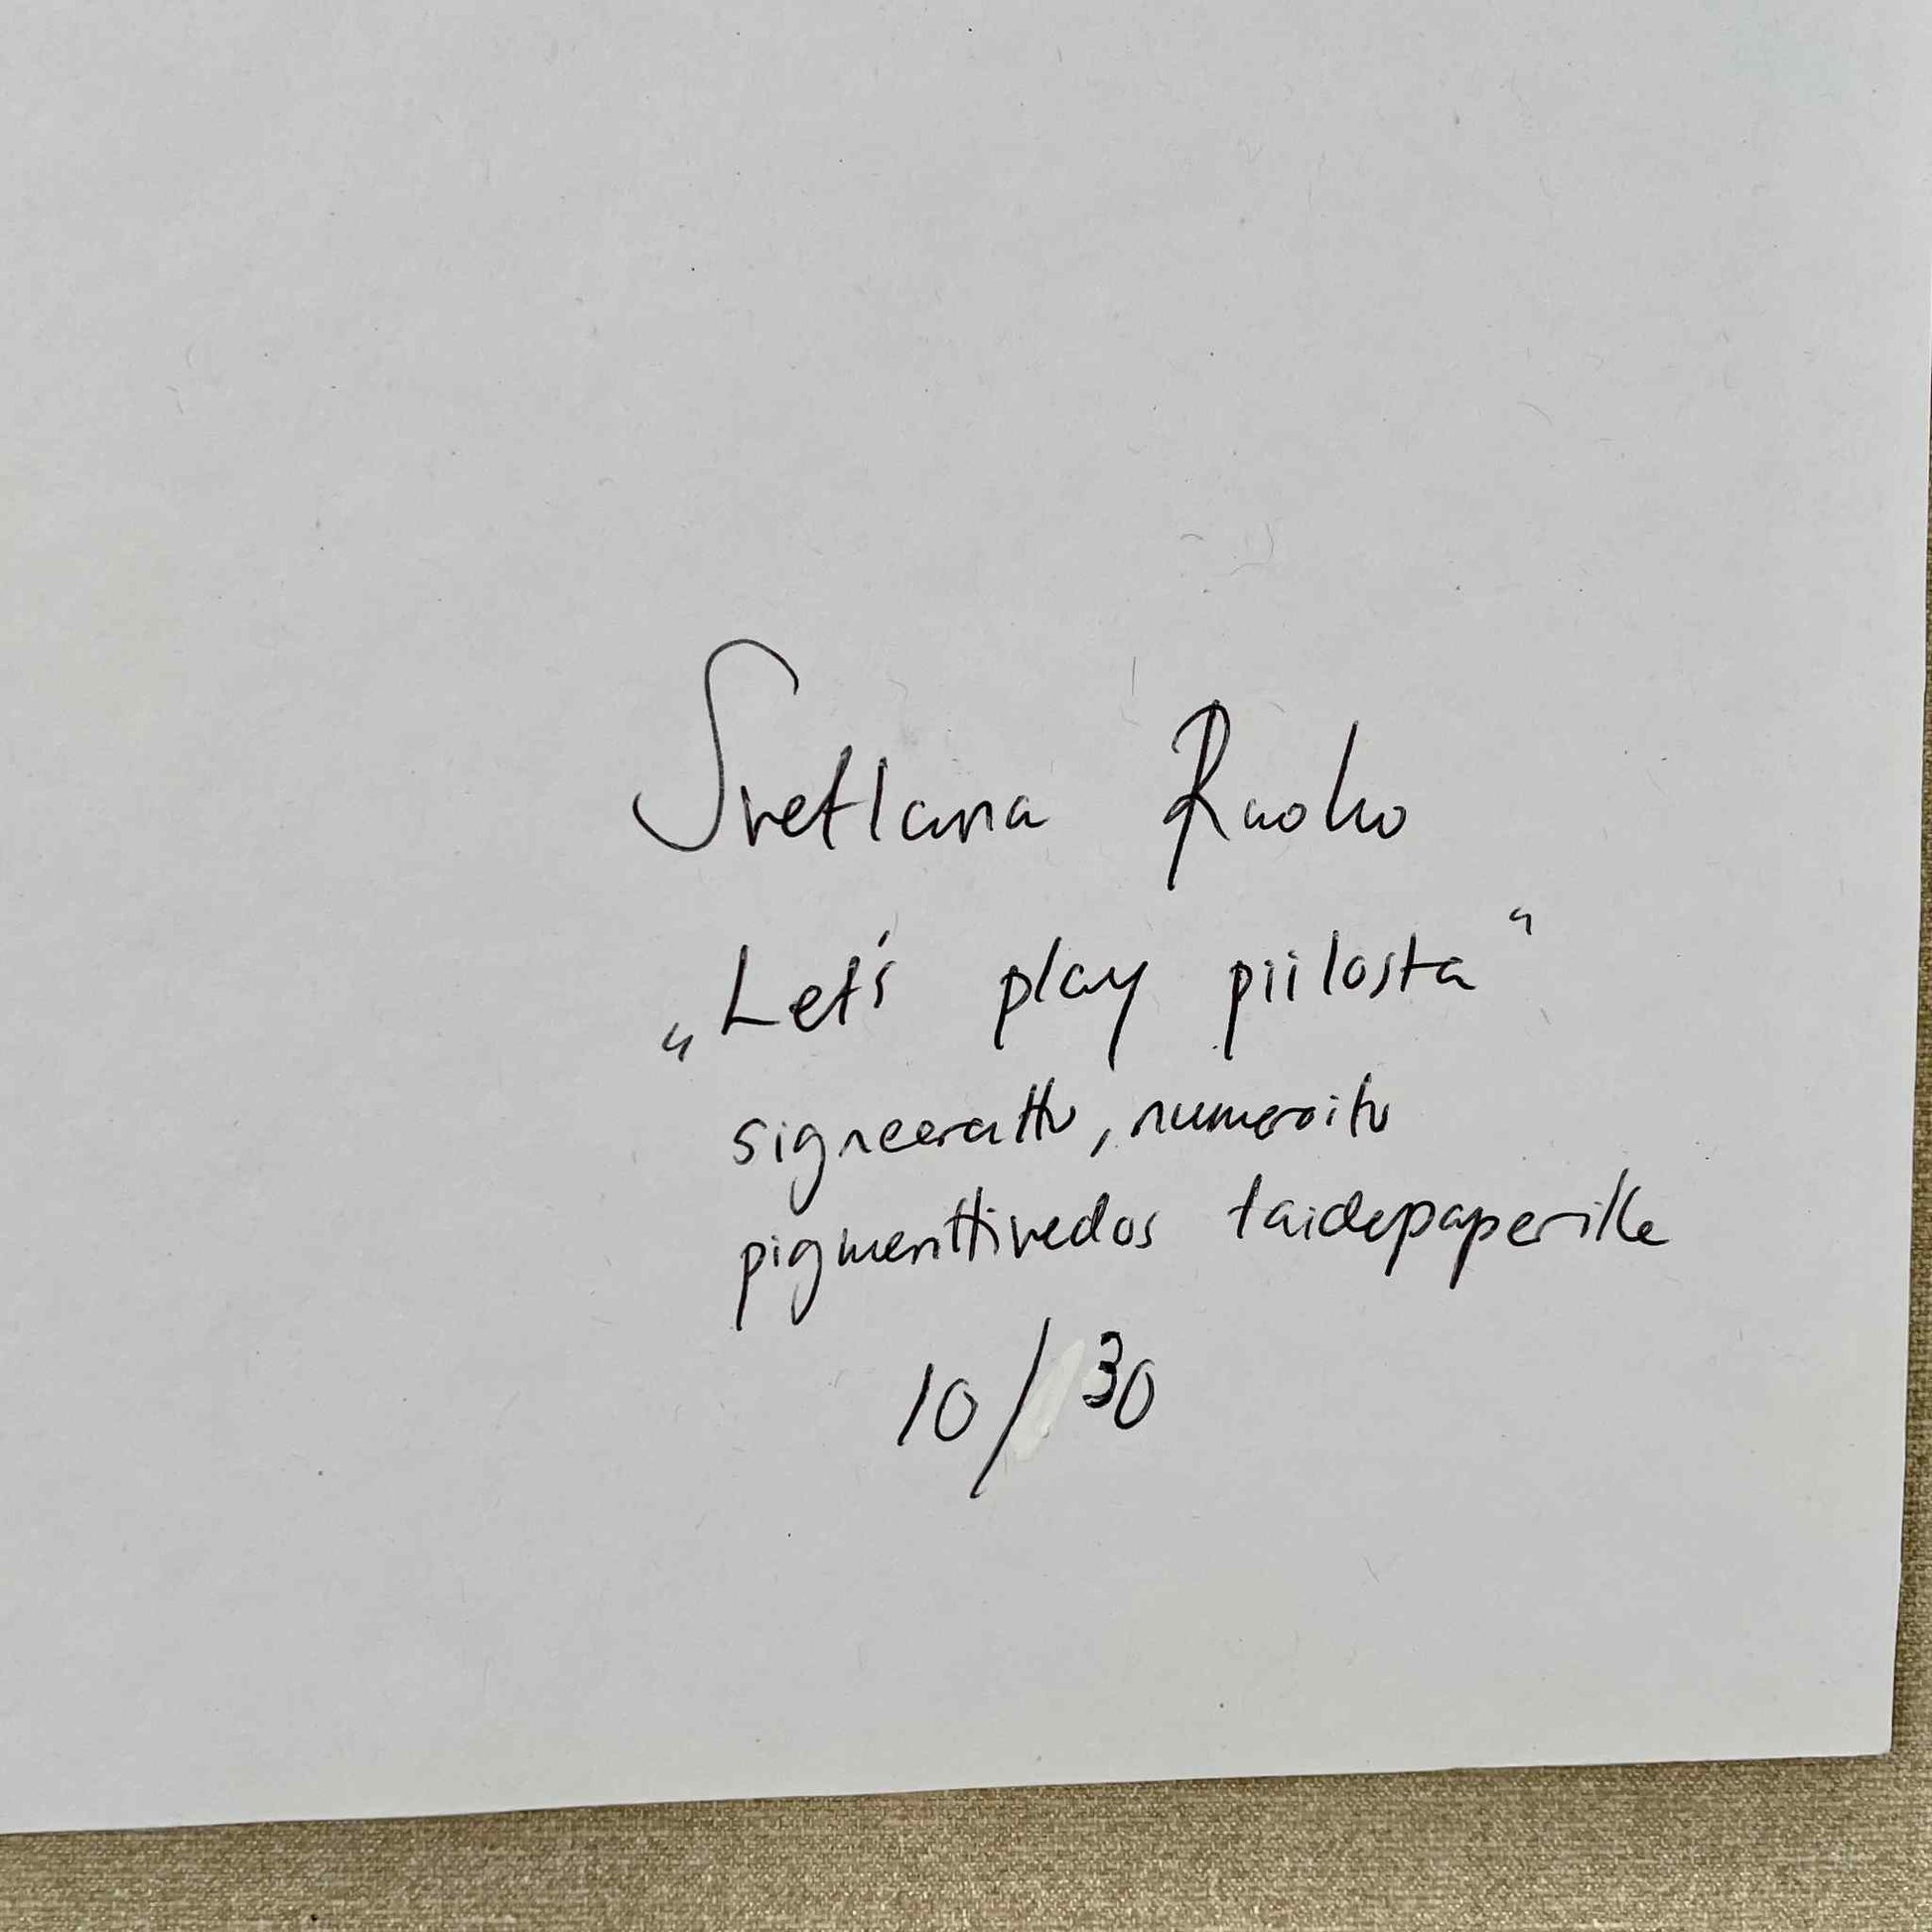 Svetlana Ruoho
„Let's play piilosta“
signeerattu, numeroitu
pigmenttivedos taidepaperille
10/30